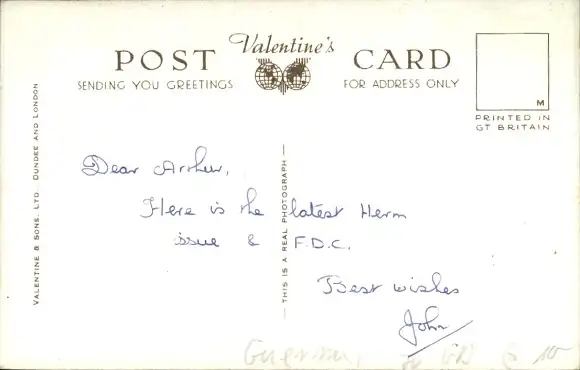 Valentine's
POST CARD
SENDING YOU GREETINGS
FOR ADDRESS ONLY
M
PRINTED IN
GT BRITAIN
VALENTINE & SONS. LTD. DUNDEE AND LONDON
THIS IS A REAL PHOTOGRAPH
Dear Arthur,
Here is the latest Herm
issue & F.D.C.
Best wishes
John